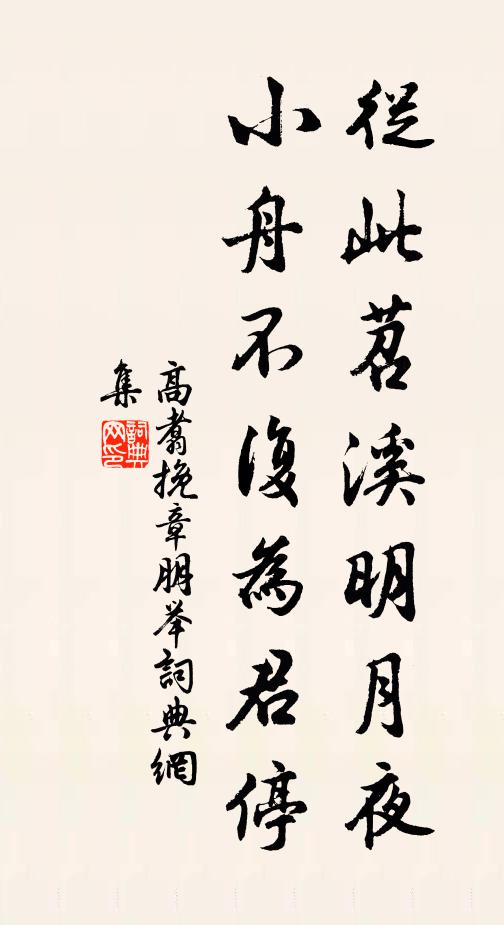 從此苕溪明月夜
小舟不復為君停
高翥挽章朋举詞典網
集
詞典
网印